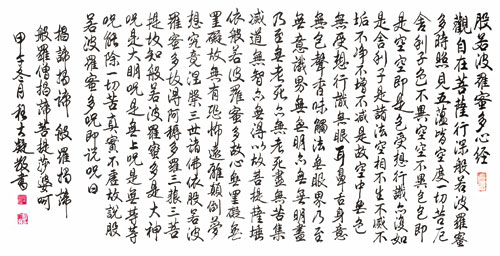 般若波羅蜜多心經
觀自在菩薩行深般若波羅蜜
多時照見五蘊皆空度一切苦厄
舍利子色不異空空不異色色即
是空空即是色受想行識亦復如
是舍利子是諸法空相不生不滅不
垢不淨不增不減是故空中無色
無受想行識無眼耳鼻舌身意
無色聲香味觸法無眼界乃至
無意識界無無明亦無無明盡
乃至無老死亦無老死盡無苦集
滅道無智亦無得以故菩提薩埵
依般若波羅蜜多故心無罣礙無
罣礙故無有恐怖遠離顛倒夢
想究竟涅槃三世諸佛依般若波
羅蜜多故得阿耨多羅三藐三菩
提故知般若波羅蜜多是大神
呪是大明呪是無上呪是無等等
呪能除一切苦真實不虛故說般
若波羅蜜多呪即說呪曰
揭諦揭諦 般羅揭諦
般羅僧揭諦菩提莎婆呵
甲午冬月 書